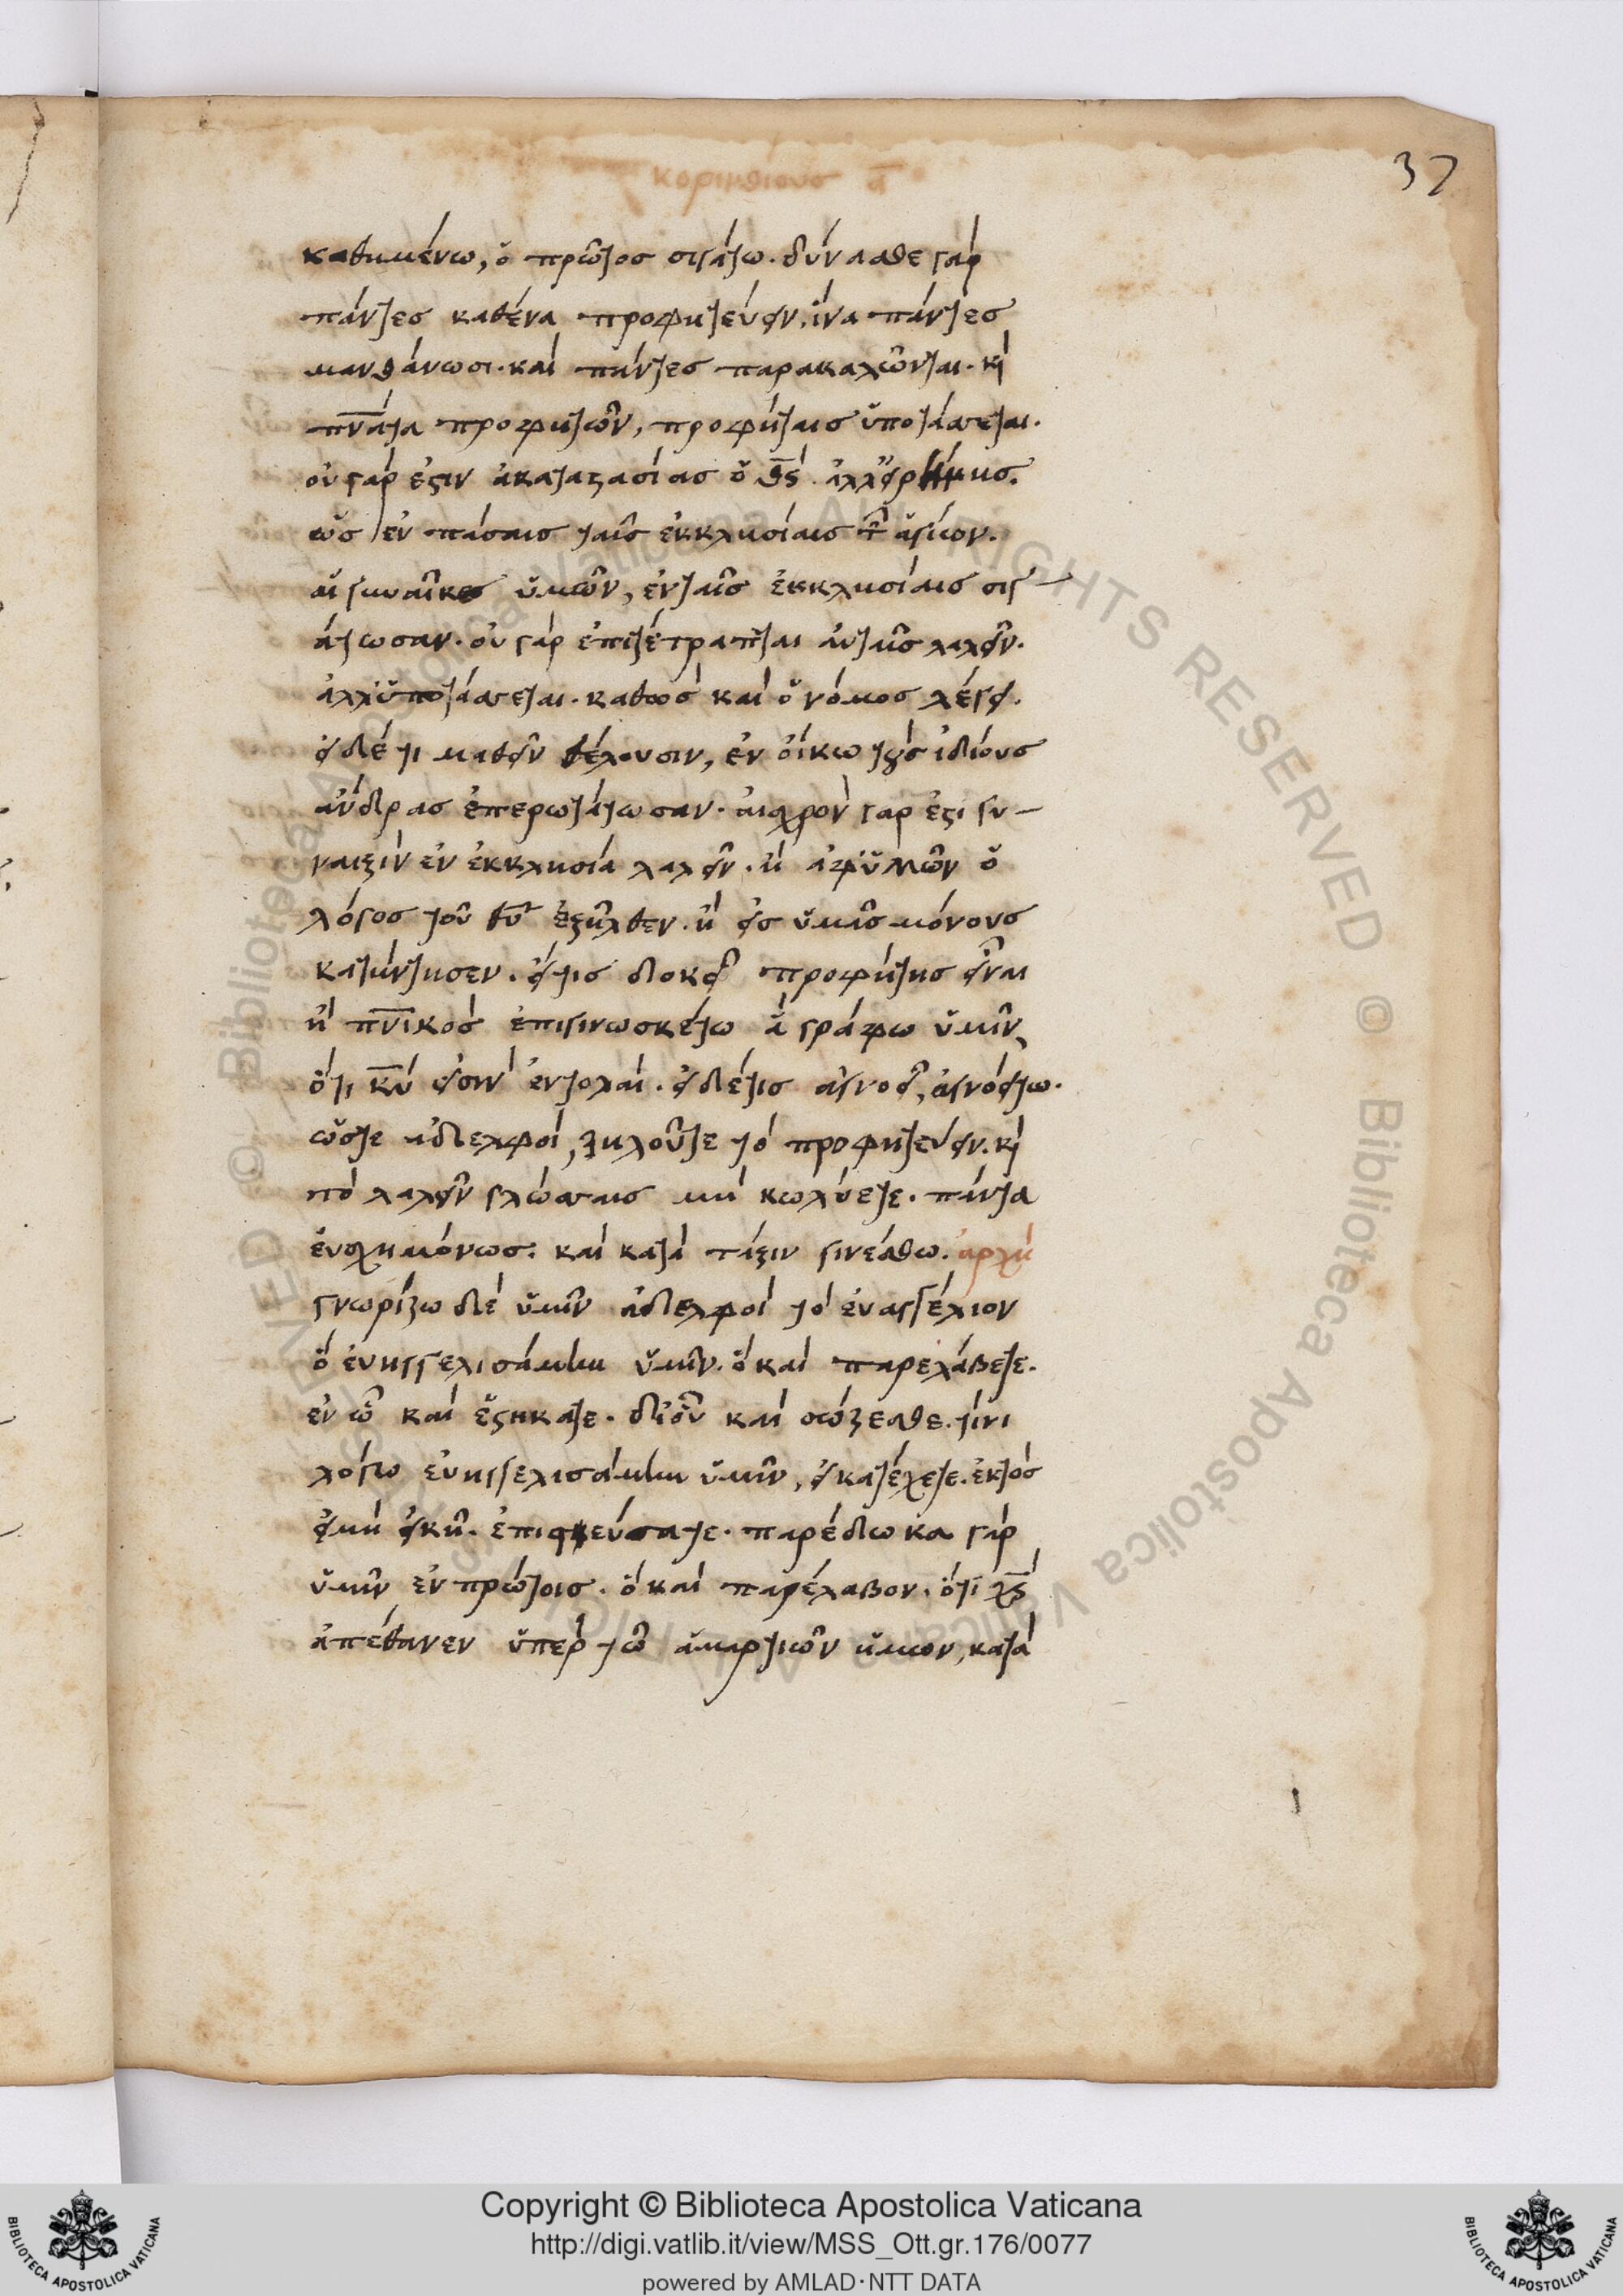 κορινθίους α
37
καθημένω, ὁ πρῶτος σιγάτω. δύνασθε γὰρ
πάντες καθένα προφητεύειν, ἵνα πάντες
μανθάνωσι. καὶ πάντες παρακαλῶνται. κὶ
πν̅ατα προφητῶν, προφήταις ὑποτάσσεται.
οὐ γάρ ἐστιν ἀκαταστασίας ὁ θς̅. ἀλλ' εἰρήνης.
ὡς ἐν πάσαις ταῖς ἐκκλησίαις τ ἁγίων.
αἱ γυναῖκες ὑμῶν, ἐν ταῖς ἐκκλησίαις σιγ
άτωσαν. οὐ γὰρ ἐπιτέτραπται αὐταῖς λαλεῖν.
ἀλλ' ὑποτάσσεται. καθὼς καὶ ὁ νόμος λέγει.
εἰ δέ τι μαθεῖν θέλουσιν, ἐν οἴκω τοὺς ἰδίους
ἄνδρας ἐπερωτάτωσαν. αἰσχρὸν γὰρ ἐστι γυ
ναιξὶν ἐν ἐκκλησία λαλεῖν. ἢ ἀφ' ὑμῶν ὁ
λόγος τοῦ θυ̅ ἐξῆλθεν. ἢ εἰς ὑμᾶς μόνους
κατήντησεν. εἴ τις δοκεῖ προφήτης εἶναι
ἢ πν̅ικὸς ἐπιγινωσκέτω ἃ γράφω ὑμῖν,
ὅτι κυ̅ εἰσὶν ἐντολαί. εἰ δέ τις ἀγνοεῖ, ἀγνοείτω.
ὥστε ἀδελφοί, ζηλοῦτε τὸ προφητεύειν. κὶ
τὸ λαλεῖν γλώσσαις μὴ κωλύετε. πάντα
εὐσχημόνως. καὶ κατὰ τάξιν γινέσθω. ἀρχὴ
γνωρίζω δὲ ὑμῖν ἀδελφοὶ τὸ εὐαγγέλιον
ὃ εὐηγγελισάμην ὑμῖν. ὃ καὶ παρελάβετε.
ἐν ὧ καὶ ἑστήκατε. δι' οὗ καὶ σώζεσθε. τίνι
λόγω εὐηγγελισάμην ὑμῖν, εἰ κατέχετε. ἐκτὸς
εἰ μὴ εἰκῆ. ἐπιστεύσατε. παρέδωκα γὰρ
ὑμῖν ἐν πρώτοις. ὃ καὶ παρέλαβον. ὅτι χς̅
ἀπέθανεν ὑπὲρ τῶ ἁμαρτιῶν ἡμων, κατὰ
© Biblioteca Apostolica Vaticana ALL RIGHTS RESERVED © Biblioteca Apostolica Vaticana ALL RIGHTS RESERVED
BIBLIOTECA APOSTOLICA VATICANA
Copyright © Biblioteca Apostolica Vaticana
http://digi.vatlib.it/view/MSS_Ott.gr.176/0077
powered by AMLAD·NTT DATA
BIBLIOTECA APOSTOLICA VATICANA